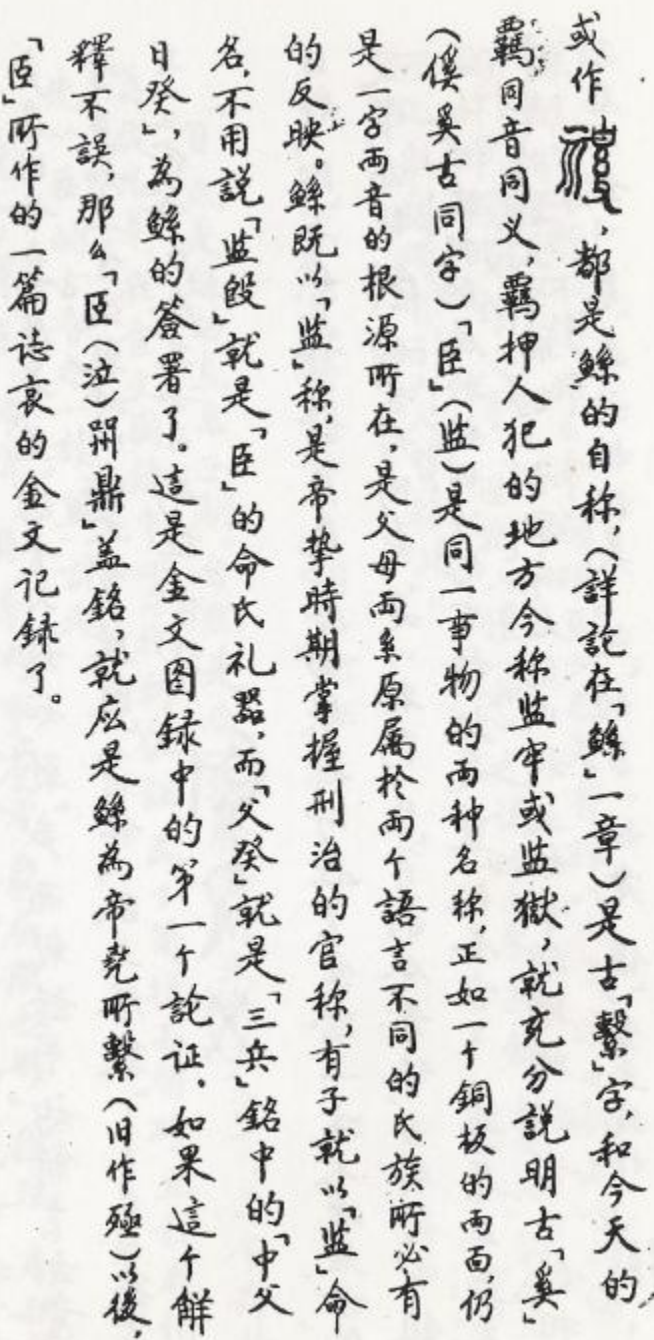 或作，都是鲧的自称，（詳論在「鲧」一章）是古「繫」字，和今天的
羈同音同义，羈押人犯的地方今称监牢或监獄，就充分説明古「奚」
（傒奚古同字）「臣」（监）是同一事物的两种名称，正如一个銅板的两面，仍
是一字两音的根源所在，是父母两系原属於两个語言不同的氏族所必有
的反映。鲧既以「监」称，是帝挚時期掌握刑治的官称，有子就以「监」命
名，不用説「监𣪘」就是「臣」的命氏礼器，而「父癸」就是「三兵」銘中的「中父
日癸」，為鲧的簽署了。這是金文图録中的第一个論证。如果這个解
釋不誤，那么「臣（泣）鼎」盖銘，就应是鲧為帝尭所繫（旧作殛）以後，
「臣」所作的一篇誌哀的金文记録了。